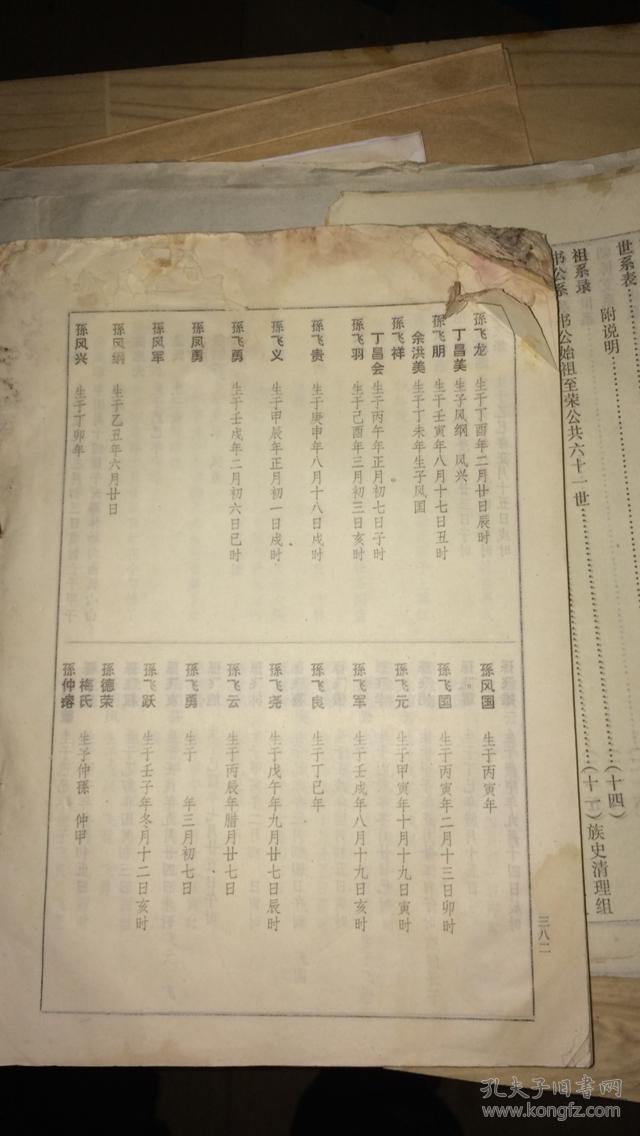 孫飞龙 生于丁酉年二月廿日辰时
丁昌美 生子风纲 风兴
孫飞朋 生于壬寅年八月十七日丑时
余洪美 生于丁未年生子风国
孫飞祥
丁昌会 生于丙午年正月初七日子时
孫飞羽 生于己酉年三月初三日亥时
孫飞贵 生于庚申年八月十八日戍时
孫飞义 生于甲辰年正月初一日戍时
孫飞勇 生于壬戍年二月初六日巳时
孫凤勇
孫风军
孫风纲 生于乙丑年六月廿日
孫风兴 生于丁卯年
孫风国 生于丙寅年
孫飞国 生于丙寅年二月十三日卯时
孫飞元 生于甲寅年十月十九日寅时
孫飞军 生于壬戍年八月十九日亥时
孫飞良 生于丁巳年
孫飞尧 生于戊午年九月廿七日辰时
孫飞云 生于丙辰年腊月廿七日
孫飞勇 生于 年三月初七日
孫飞跃 生于壬子年冬月十二日亥时
孫德荣
梅氏 生子仲孫 仲甲
孫仲溶
三八二
世系表
附说明……(十四)
祖系录……(十一)族史清理组
书公系 书公始祖至荣公共六十一世
孔夫子旧书网
www.kongfz.com